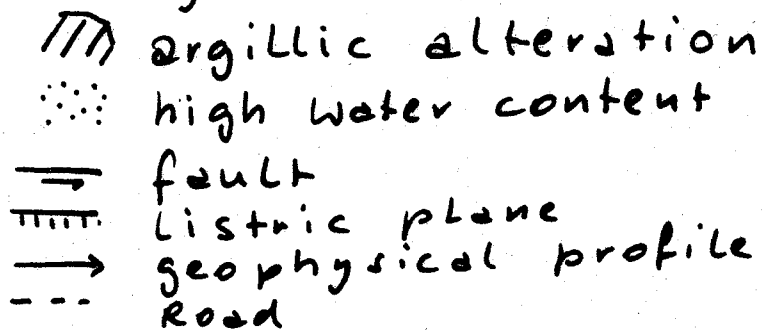 argillic alteration
high water content
fault
listric plane
geophysical profile
Road